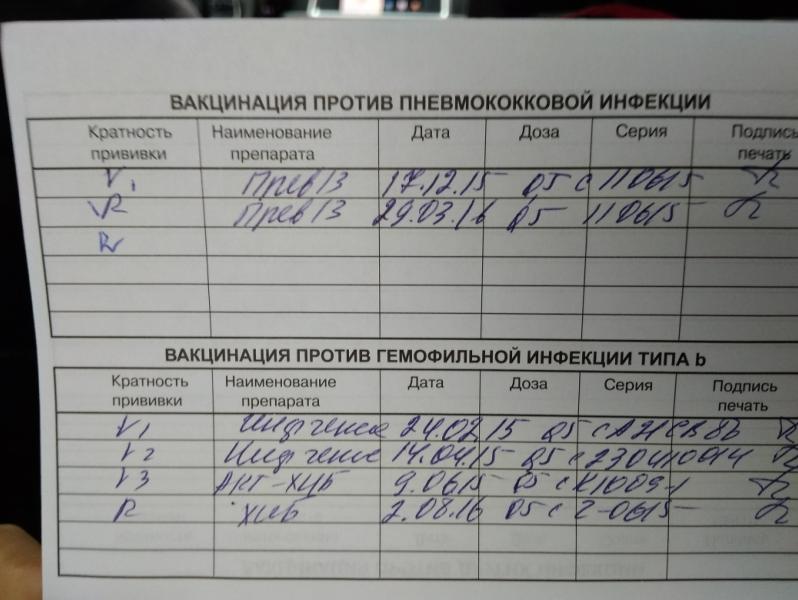 ВАКЦИНАЦИЯ ПРОТИВ ПНЕВМОКОККОВОЙ ИНФЕКЦИИ
Кратность прививки Наименование препарата Дата Доза Серия Подпись печать
V1 Прев13 17.12.15 05 с 110615
VR Прев13 29.03.16 05 110615
R
ВАКЦИНАЦИЯ ПРОТИВ ГЕМОФИЛЬНОЙ ИНФЕКЦИИ ТИПА b
Кратность прививки Наименование препарата Дата Доза Серия Подпись печать
V1 24.02.15 05 с
V2 14.04.15 05 с
V3 Акт-хиб 9.06.15 05 с
R хиб 2.08.16 05 с